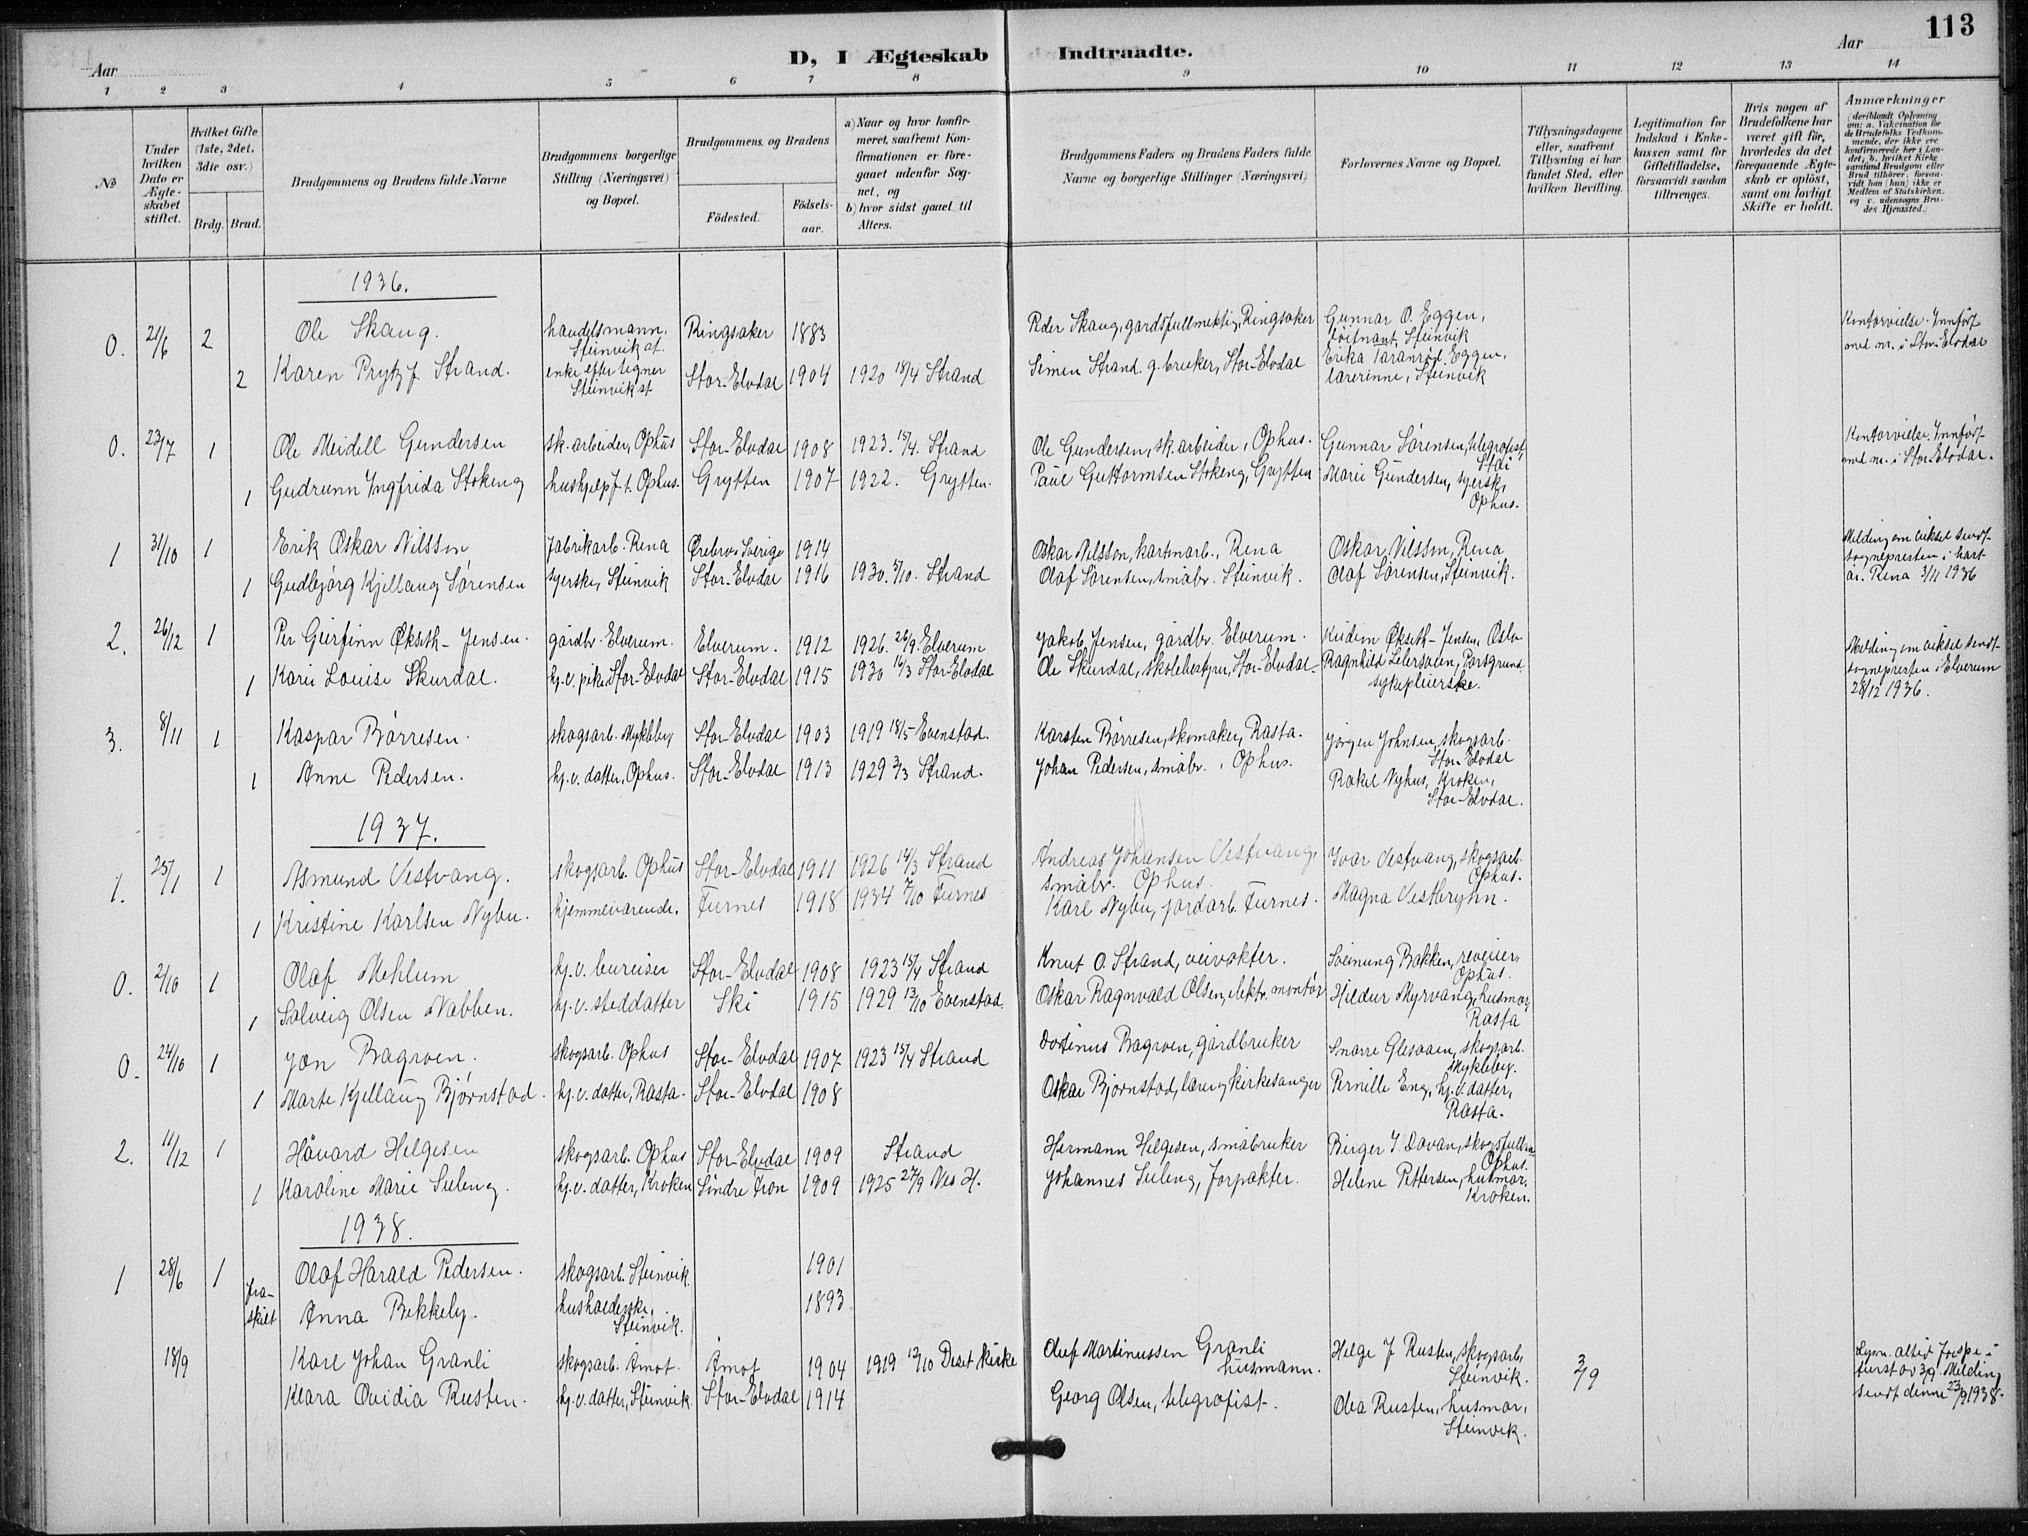 113
D, I Ægteskab Indtraadte.
Aar Aar
1 2 3 4 5 6 7 8 9 10 11 12 13 14
No
Under hvilken Dato er Ægteskabet stiftet.
Hvilket Gifte (1ste, 2det, 3die osv.)
Brdg. Brud.
Brudgommens og Brudens fulde Navne
Brudgommens borgerlige Stilling (Næringsvei) og Bopæl.
Brudgommens og Brudens
Födested. Födsels-aar.
a) Naar og hvor konfirmeret, saafremt Konfirmationen er foregaaet udenfor Sognet, og
b) hvor sidst gaaet til Alters.
Brudgommens Faders og Brudens Faders fulde Navne og borgerlige Stillinger (Næringsvei)
Forlovernes Navne og Bopæl.
Tillysningsdagene eller, saafremt Tillysning ei har fundet Sted, efter hvilken Bevilling.
Legitimation for Indskud i Enkekassen samt for Giftetilladelse, forsaavidt saadan tiltrænges.
Hvis nogen af Brudefolkene har været gift för, hvorledes da det foregaaende Ægteskab er oplöst, samt om lovligt Skifte er holdt.
Anmærkninger (deriblandt Oplysning om: a. Vakcination for de Brudefolks Vedkommende, der ikke ere konfirmerede her i Landet, b. hvilket Kirkesamfund Brudgom eller Brud tilhörer, forsaavidt han (hun) ikke er Medlem af Statskirken, og c. udensogns Brudes Hjemsted.)
1936.
0. 21/6 2 Ole Skaug. handelsmann, Steinvik st. Ringsaker 1883 Peder Skaug, gårdsfullmektig, Ringsaker Gunnar O. Eggen, löitnant, Steinvik Kontorvielse. Innført med nr. i Stor-Elvdal
2 Karen Prytz f. Strand. enke efter tegner Steinvik st Stor-Elvdal 1904 1920 18/4 Strand Simen Strand. g.bruker, Stor-Elvdal Erika Eggen, lærerinne, Steinvik
0. 23/7 1 Ole Meidell Gundersen sk.arbeider, Ophus Stor-Elvdal 1908 1923. 15/4. Strand Ole Gundersen, sk.arbeider, Ophus. Gunnar Sørensen, telegrafist, Stai Kontorvielse. Innført med nr. i Stor-Elvdal.
1 Gudrunn Ingfrida Stokeng hushjelp f.t. Ophus. Grytten 1907 1922. Grytten. Paul Guttormsen Stokeng, Grytten Marie Gundersen, syersk, Ophus.
1 31/10 1 Erik Oskar Nilsson fabrikarb. Rena Ørebro, Sverige 1914 Oskar Nilsson, kartonarb., Rena Oskar Nilsson, Rena Melding om vielse sendt sognepresten i Rena 3/11 1936
1 Gudbjörg Kjellaug Sørensen syerske, Steinvik Stor-Elvdal 1916 1930. 5/10. Strand Olaf Sørensen, småbr. Steinvik. Olaf Sørensen, Steinvik.
2. 26/12 1 Per Geirfinn Økseth-Jensen. gårdbr. Elverum. Elverum. 1912 1926. 26/9. Elverum Jakob Jensen, gårdbr. Elverum. Økseth-Jensen, Oslo Melding om vielse sendt sognepresten i Elverum 28/12 1936.
1 Kari Louise Skurdal. hj.v. pike, Stor-Elvdal Stor-Elvdal 1915 1930 16/3 Stor-Elvdal Ole Skurdal, Stor-Elvdal Ragnhild Porsgrund sykepleierske.
3. 8/11 1 Kaspar Børresen. skogsarb. Mykleby Stor-Elvdal 1903 1919 18/5 Evenstad. Karsten Børresen, skomaker, Rasta. Jørgen Johnsen, skogsarb. Stor-Elvdal
1 Anne Pedersen. hj.v. datter, Ophus. Stor-Elvdal 1913 1929 3/3 Strand. Johan Pedersen, småbr., Ophus. Rakel Nyhus, Kroken, Stor-Elvdal.
1937.
1. 25/1 1 Asmund Vestvang. skogsarb. Ophus Stor-Elvdal 1911 1926 14/3 Strand Andreas Johansen Vestvang, småbr. Ophus. Ivar Vestvang, skogsarb. Ophus.
1 Kristine Karlsen Nybu. hjemmeværende. Furnes 1918 1934 7/10 Furnes Karl Nybu, jordarb. Furnes. Magna
0. 2/10 1 Olaf Mehlum hj.v. bureiser Stor-Elvdal 1908 1923 15/4 Strand Knut O. Strand, veivokter. Sveinung Bakken, Ophus.
1 Solveig Olsen Nabben. hj.v. steddatter Ski 1915 1929 13/10 Evenstad. Oskar Ragnvald Olsen, elektr. montör Hildur Myrvang, husmor, Rasta
0. 24/10 1 Jon Bagroen. skogsarb. Ophus Stor-Elvdal 1907 1923 15/4 Strand Bagroen, gårdbruker Snorre skogsarb. Mykleby.
1 Marte Kjellaug Bjørnstad. hj.v. datter, Rasta. Stor-Elvdal 1908 Oskar Bjørnstad, lærer og kirkesanger Pernille Eng, hj.v. datter, Rasta.
2. 11/12 1 Håvard Helgesen skogsarb. Ophus Stor-Elvdal 1909 Strand Hermann Helgesen, småbruker Birger I. Ophus.
1 Karoline Marie Suleng. hj.v. datter, Kroken Söndre Fron 1909 1925 27/9 Johannes Suleng, forpakter. Helene Pettersen, husmor, Kroken.
1938.
1 28/6 1 Olaf Harald Pedersen. skogsarb. Steinvik. 1901
fraskilt Anna Bekkely. husholderske, Steinvik. 1893
18/9 Karl Johan Granli skogsarb. Åmot. Åmot 1904 1919 12/10 Deset kirke Oluf Martinussen Granli husmann. Helge J Rusten, skogsarb, Steinvik. 3/9 Melding sendt denne 23/9 1938.
Klara Ovidia Rusten. hj.v. datter, Steinvik. Stor-Elvdal 1914 Georg Olsen, telegrafist. Olea Rusten, husmor, Steinvik.